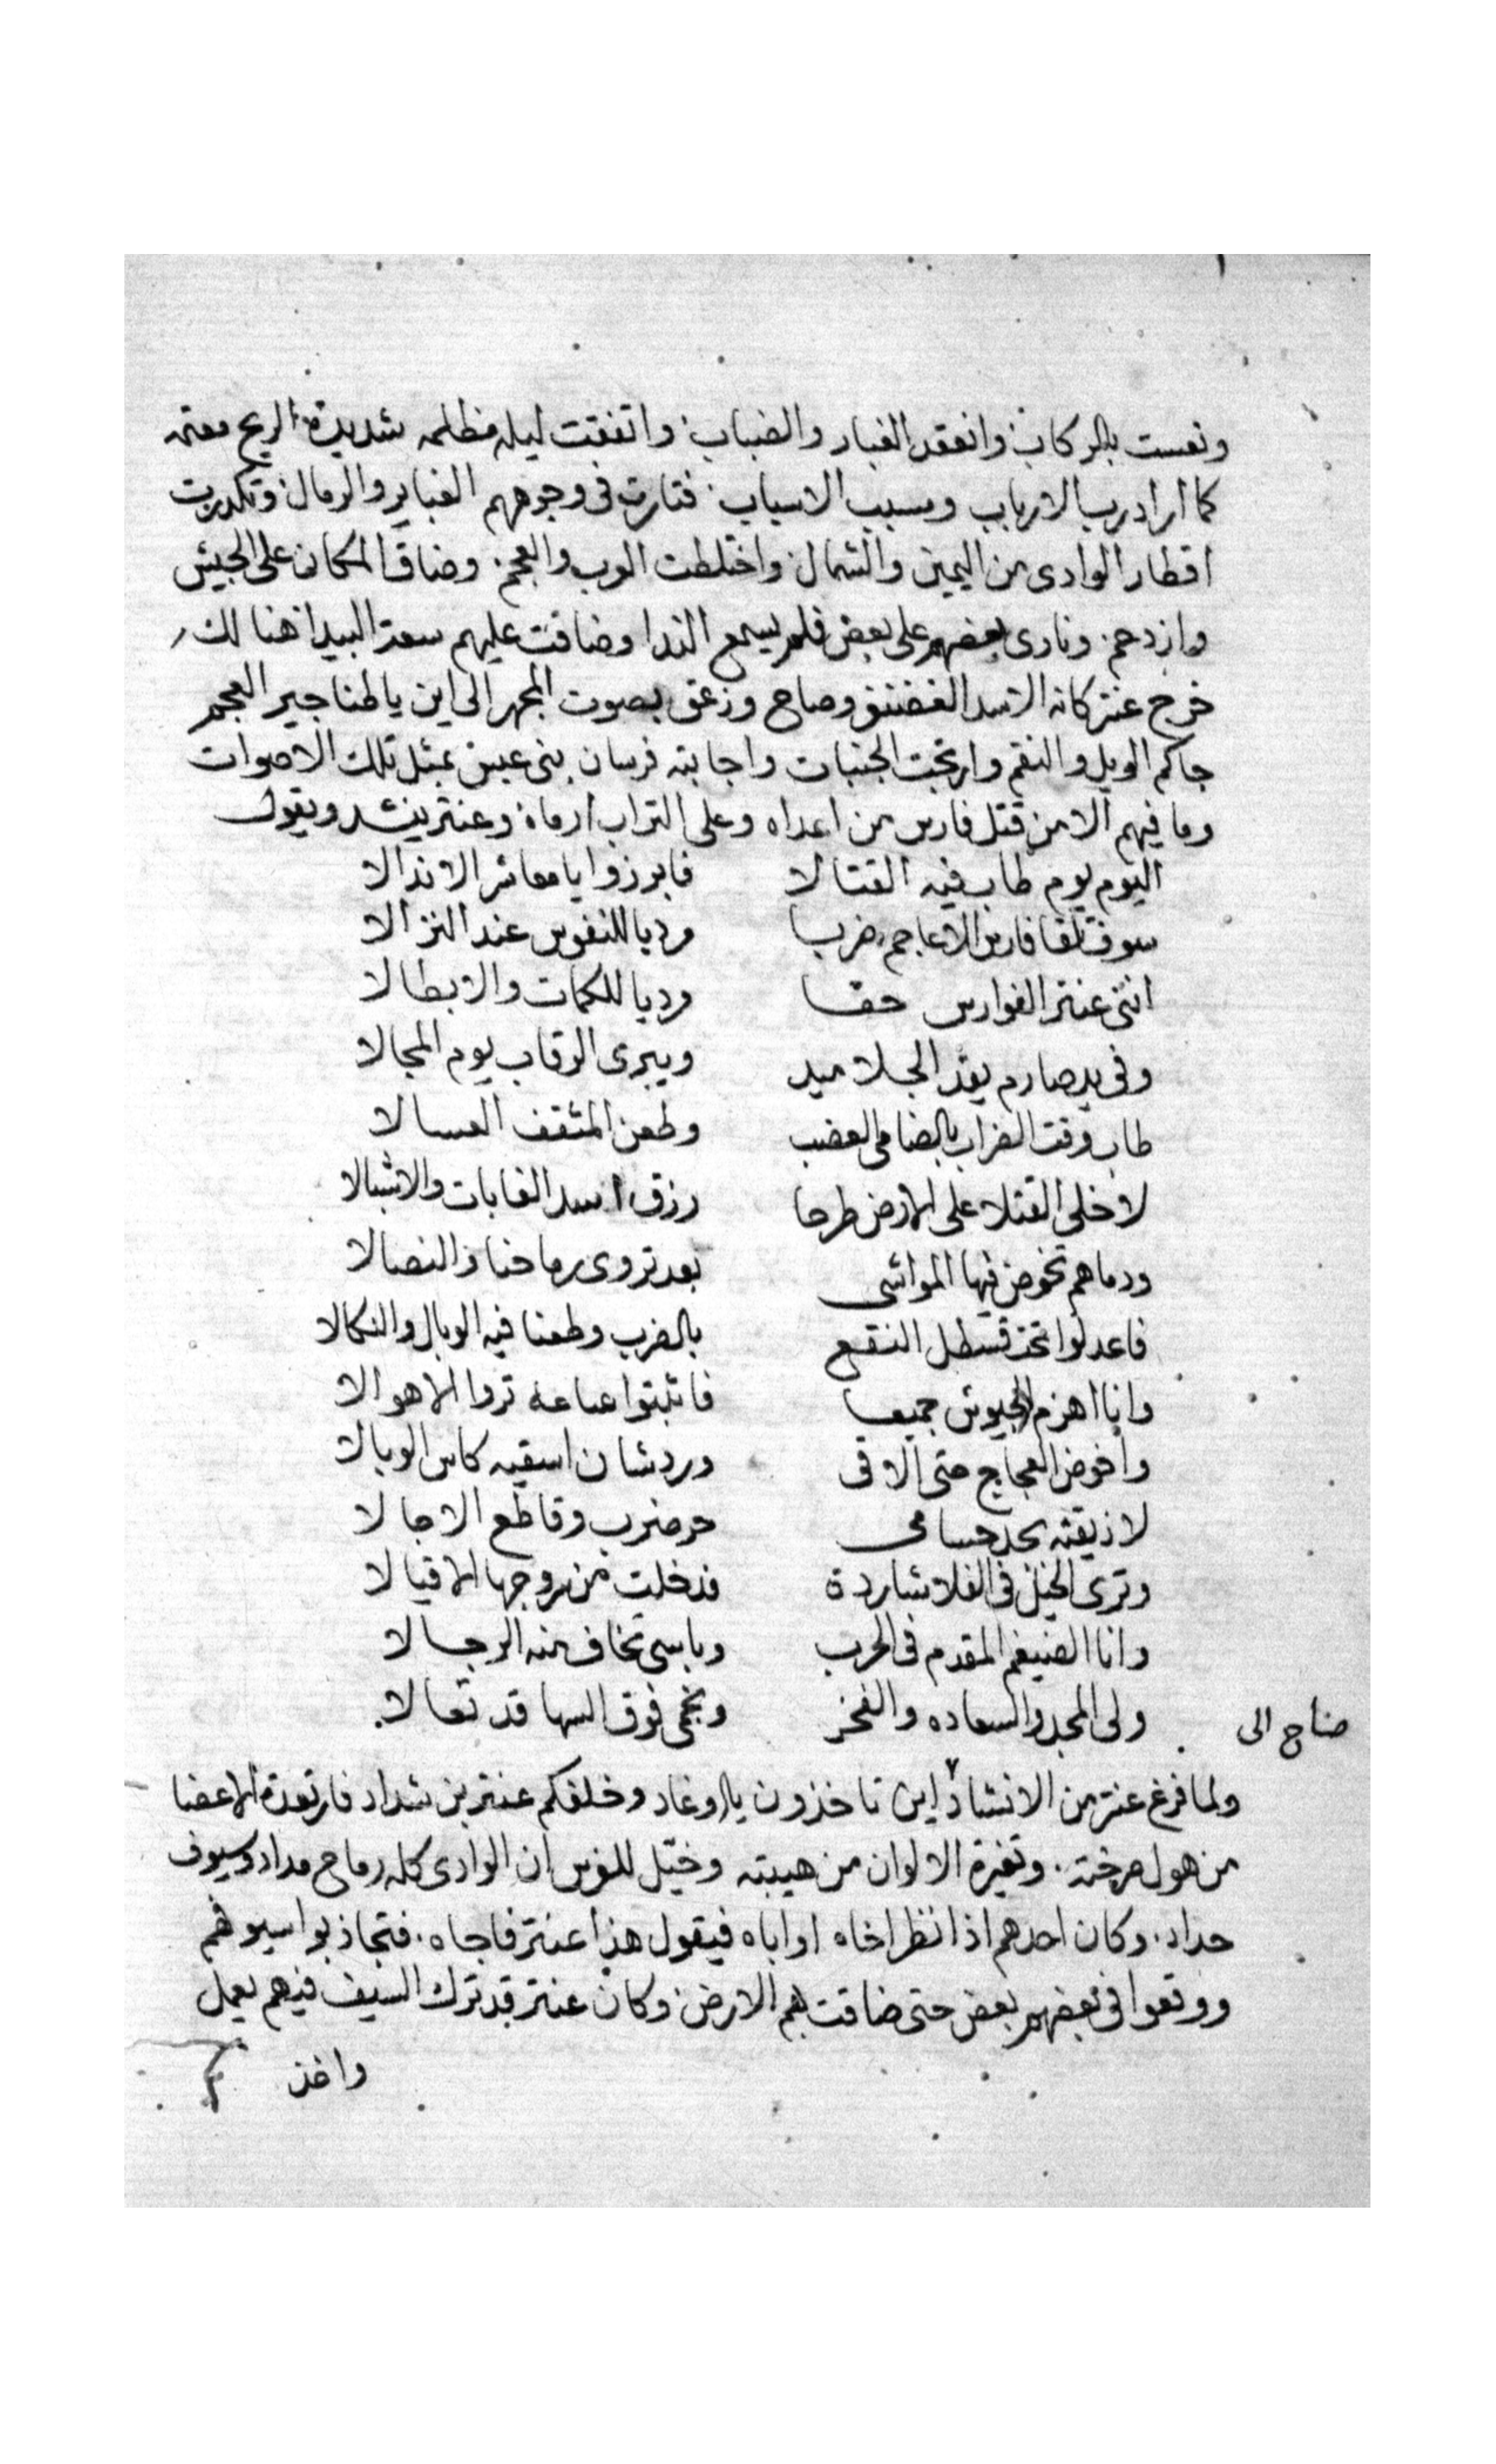 وتعست بالركاب وانعقد الغبار والضباب واتفقت ليله مظلمه شديدة الريح معتمه
كما اراد رب الارباب ومسبب الاسباب فتارت في وجوههم الغباير والرمال وتكدرت
اقطار الوادى من اليمين والشمال واختلطت العرب والعجم وضاق المكان على الجيش
وازدحم ونادى بعضهم على بعض فلم يسمع الندا وضاقت عليهم سعة البيدا هنالك
خرج عنتر كانه الاسد الغضنفر وصاح وزعق بصوت المجهر الى اين يا طناجير العجم
جاكم الويل والنقم وارتجت الجنبات واجابته فرسان بنى عبس بمثل تلك الاصوات
وما فيهم الا من قتل فارس من اعداه وعلى التراب ارماه وعنتر ينشد ويقول
اليوم يوم طاب فيه القتالا فابرزوا يا معاشر الاندالا
سوف تلقا فارس الاعاجم ضربا مرديا للنفوس عند النزالا
اننى عنتر الفوارس حقا مرديا للكمات والابطالا
وفى يد صارم يقد الجلاميد ويبرى الرقاب يوم المجالا
طاب وقت الضراب بالضامى العضب وطعن المثقف العسالا
لاخلى القتلا على الارض طرحا رزق اسد الغابات والاشبالا
ودماهم تخوض فيها المواشى بعد تروى رماحنا والنصالا
فاعدلوا تحت قسطل النقع بالضرب وطعنا فيه الوبال والنكالا
وانا اهزم الجيوش جميعا فاثبتوا ساعه تروا الاهوالا
واخوض العجاج حتى الاقى وردشان اسقيه كاس الوبالا
لاذيقنه بحد حسامى حر ضرب وقاطع الاجالا
وترى الخيل فى الفلا شاردة قد خلت من سروجها الاقيالا
وانا الضيغم المقدم فى الحرب وباسى تخاف منه الرجالا
ولى المجد والسعاده والفخر ونجمى فوق السها قد تعالا
صاح الى
ولما فرغ عنتر من الانشاد اين تاخذون يا اوغاد وخلفكم عنتر بن شداد فارتعدة الاعضا
من هول صرخته وتغيرة الالوان من هيبته وخيّل للفرس ان الوادى كله رماح مداد وسيوف
حداد وكان احدهم اذا نظر اخاه او اباه فيقول هذا عنتر فاجاه فتجاذبوا سيوفهم
ووقعوا فى بعضهم بعض حتى ضاقت بهم الارض وكان عنتر قد ترك السيف فيهم يعمل
واخذ